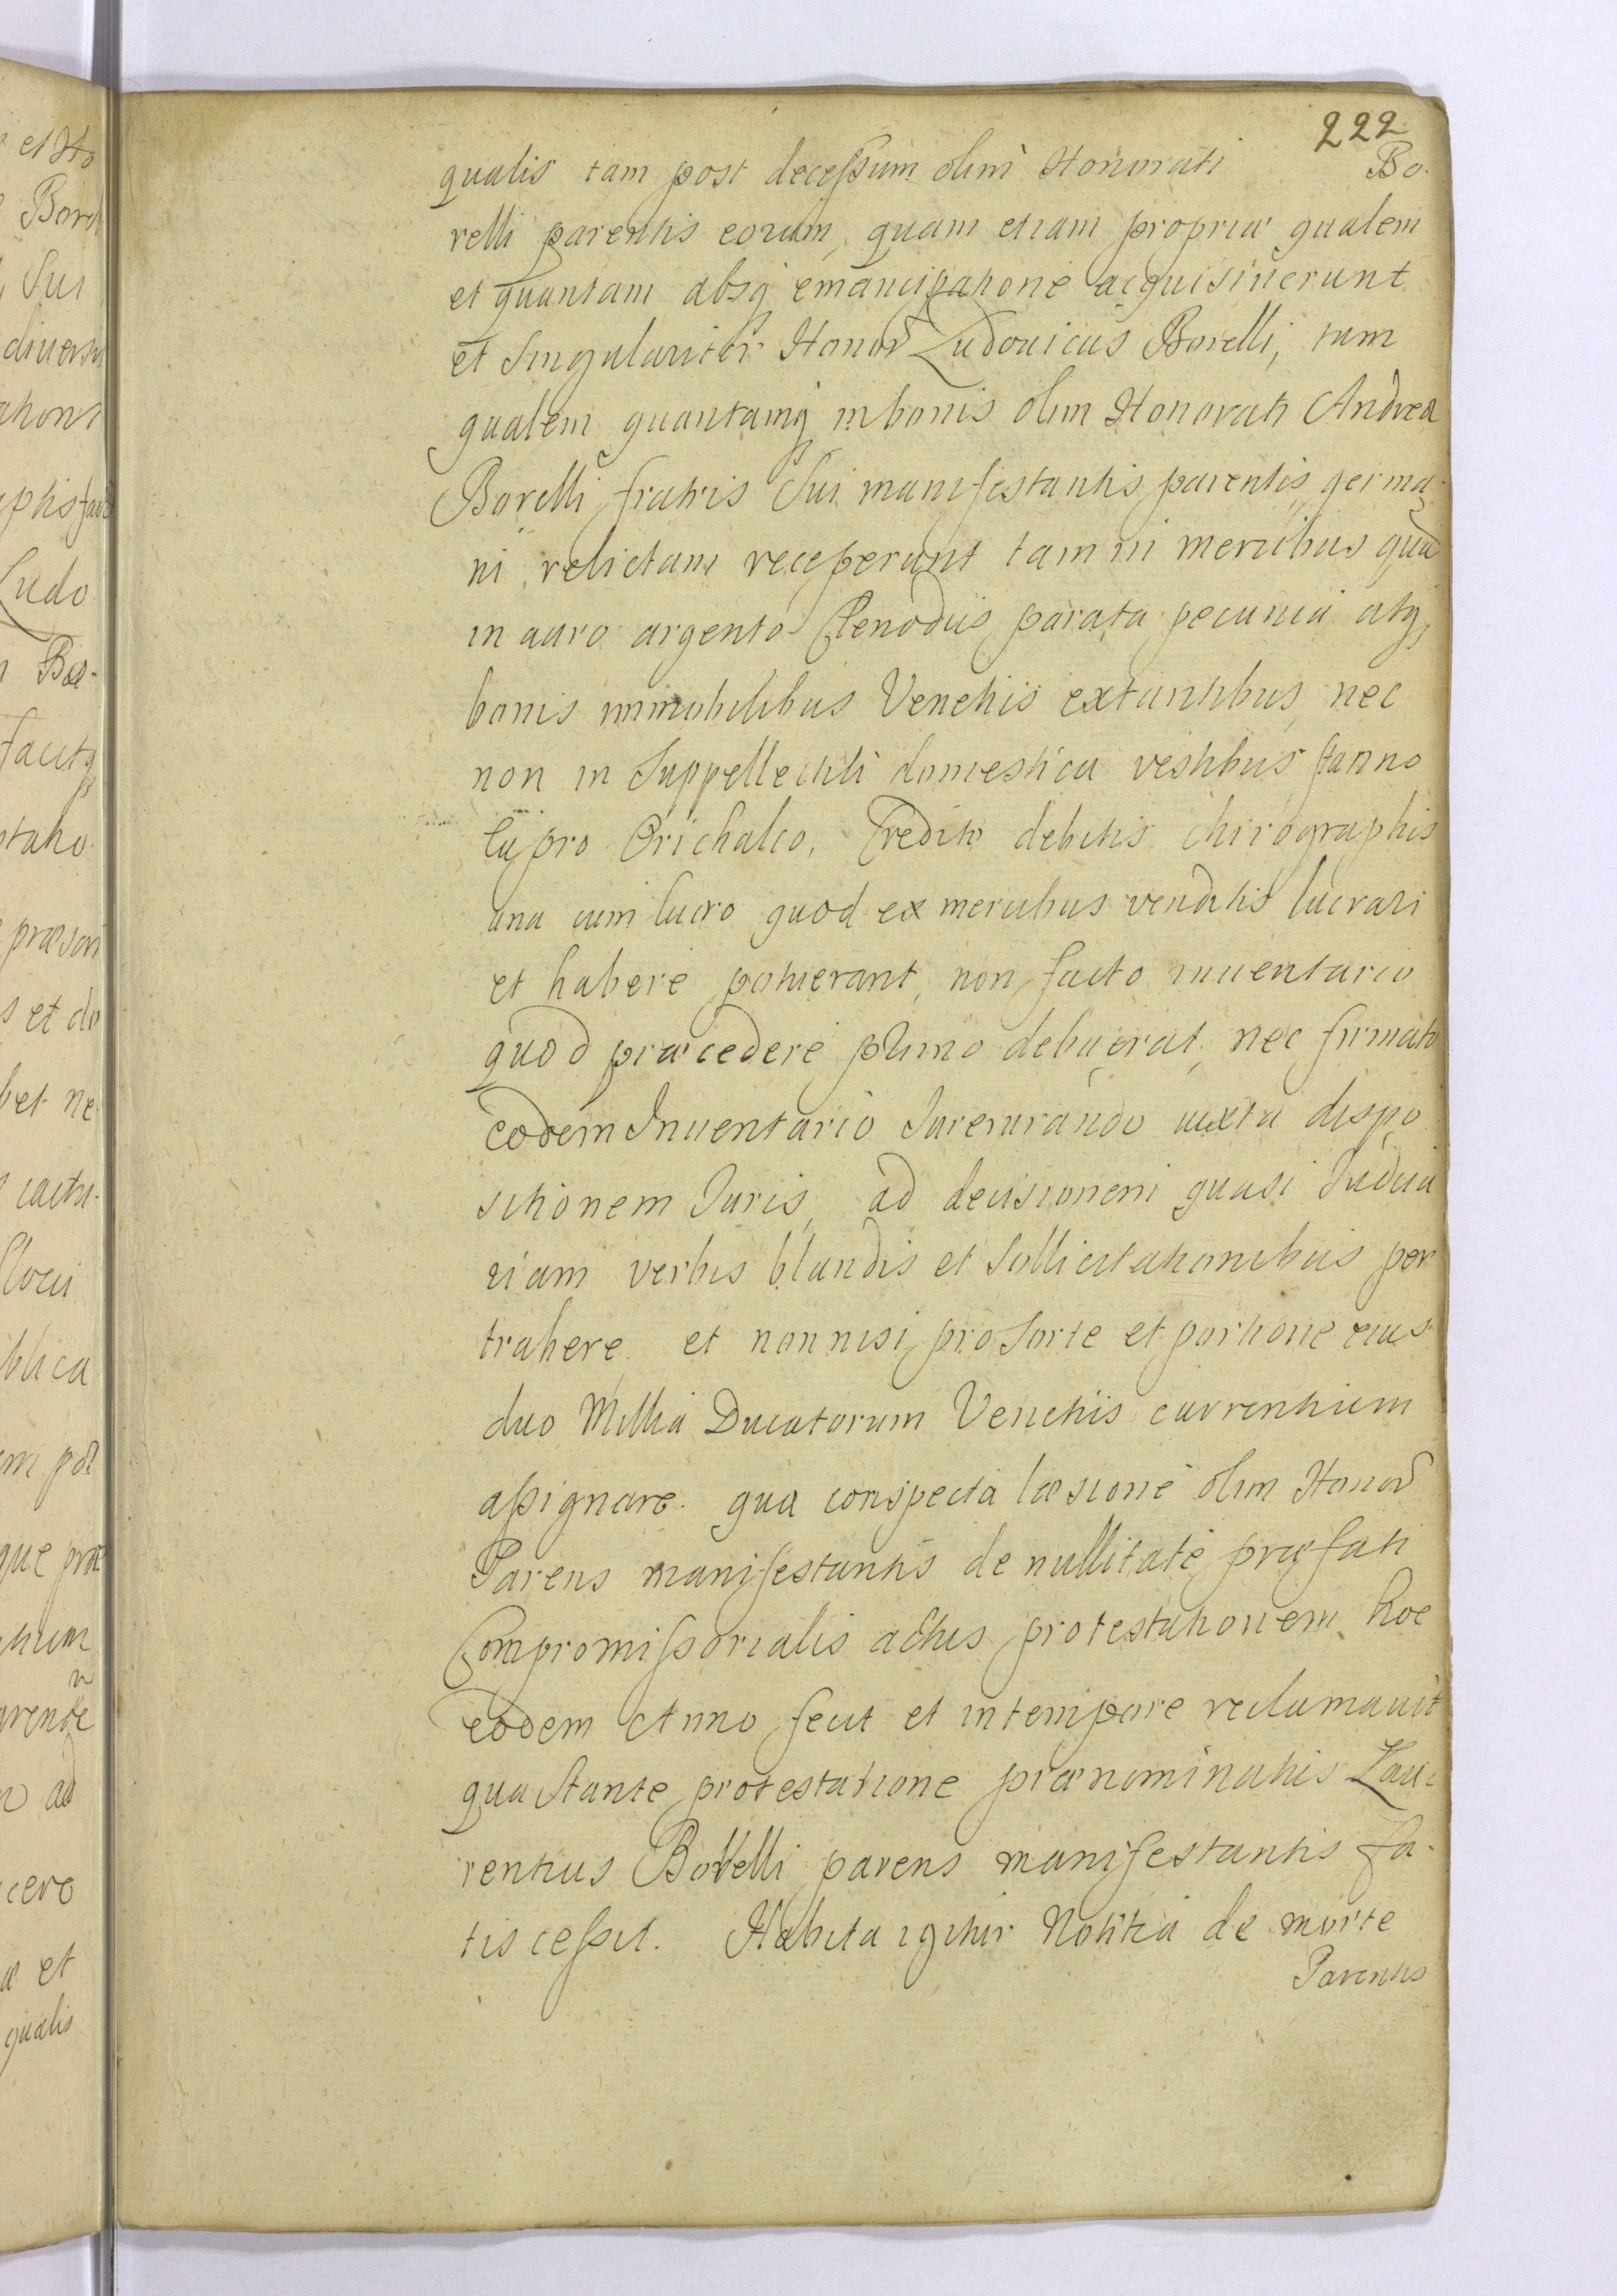 222
qualis tam post decessum olim Honorati Bo-
relli parentis eorum, quam etiam propria qualem
et quantam absq emancipatione acquisiuerunt
et Singulariter Honor Ludouicus Borelli, tam
qualem quantamq in bonis olim Honorati Andrea
Borelli fratris Sui manifestantis parentis germa-
ni relictam receperunt tam in mercibus qua
in auro argento Clenodiis parata pecunia atq
bonis immobilibus Venetiis extantibus nec
non in Suppellectili domestica vestibus stanno
cupro Orichalco, Credito debitis chirographis
una cum lucro quod ex mercibus venditis lucrari
et habere potuerant, non facto inuentario
quod præcedere primo debuerat, nec firmato
eodem Inuentario Jureiurando iuxta dispo
sitionem Juris, ad decisionem quasi Judicia
riam verbis blandis et Sollicitationibus per
trahere et non nisi pro Sorte et portione eius
duo Millia Ducatorum Venetiis currentium
assignare. qua conspecta læsione olim Honor
Parens manifestantis de nullitate præfati
Compromissorialis actus protestationem hoc
eodem Anno fecit et in tempore reclamauit
qua Stante protestatione prænominatus Lau-
rentius Borelli parens manifestantis fa-
tis cessit. Habita igitur Notitia de morte
Parentis